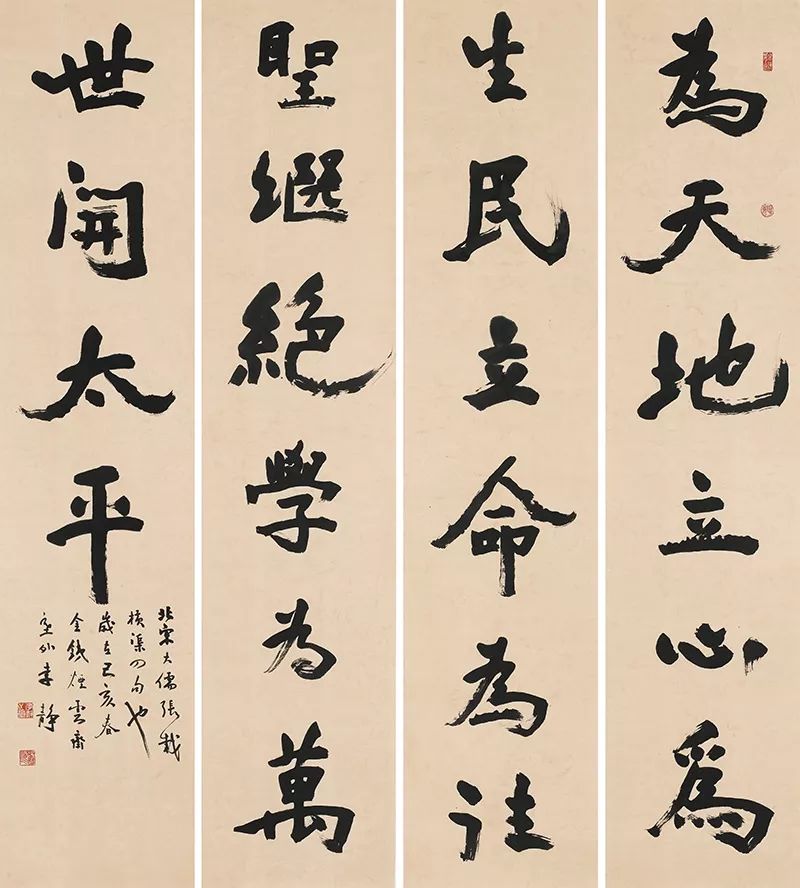 為天地立心為
生民立命為往
聖繼絕學為萬
世開太平
北宋大儒張載
橫渠四句也
歲在己亥春
雲齋
塞外李靜